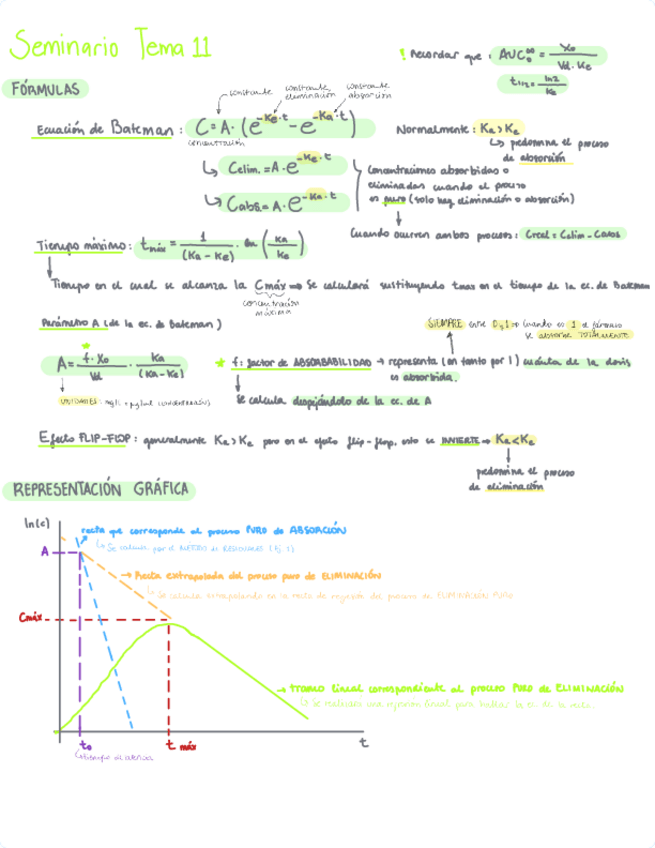 Seminario Tema 11
! Recordar que : AUC₀^∞ = X₀ / Vd · Ke
t₁/₂ = ln2 / Ke
FÓRMULAS
constante constante eliminación constante absorción
Ecuación de Bateman : C = A · (e^(-Ke·t) - e^(-Ka·t))
concentración
Normalmente : Ka > Ke
↳ predomina el proceso
de absorción
↳ Celim. = A · e^(-Ke·t)
↳ Cabs. = A · e^(-Ka·t)
Concentraciones absorbidas o
eliminadas cuando el proceso
es puro (solo hay eliminación o absorción)
Cuando ocurren ambos procesos : Creal = Celim - Cabs
Tiempo máximo : t máx = 1 / (Ka - Ke) · ln (Ka / Ke)
Tiempo en el cual se alcanza la Cmáx ⇒ Se calculará sustituyendo tmax en el tiempo de la ec. de Bateman
concentración
máxima
Parámetro A (de la ec. de Bateman)
SIEMPRE entre 0 y 1 ⇒ Cuando es 1 el fármaco
se absorbe TOTALMENTE
A = f · X₀ / Vd · Ka / (Ka - Ke)
* f : factor de ABSORBABILIDAD → representa (en tanto por 1) cuánta de la dosis
es absorbida.
UNIDADES : mg/L
Se calcula despejándolo de la ec. de A
Efecto FLIP-FLOP : generalmente Ka > Ke pero en el efecto flip-flop, esto se INVIERTE ⇒ Ka < Ke
predomina el proceso
de eliminación
REPRESENTACIÓN GRÁFICA
ln(c)
recta que corresponde al proceso PURO de ABSORCIÓN
↳ Se calcula por el MÉTODO de RESIDUALES
A
→ Recta extrapolada del proceso puro de ELIMINACIÓN
↳ Se calcula extrapolando en la recta de regresión del proceso de ELIMINACIÓN PURO
Cmáx
→ tramo lineal correspondiente al proceso PURO de ELIMINACIÓN
↳ Se realiza una regresión lineal para hallar la ec. de la recta
t₀ t máx t
↳ tiempo de latencia